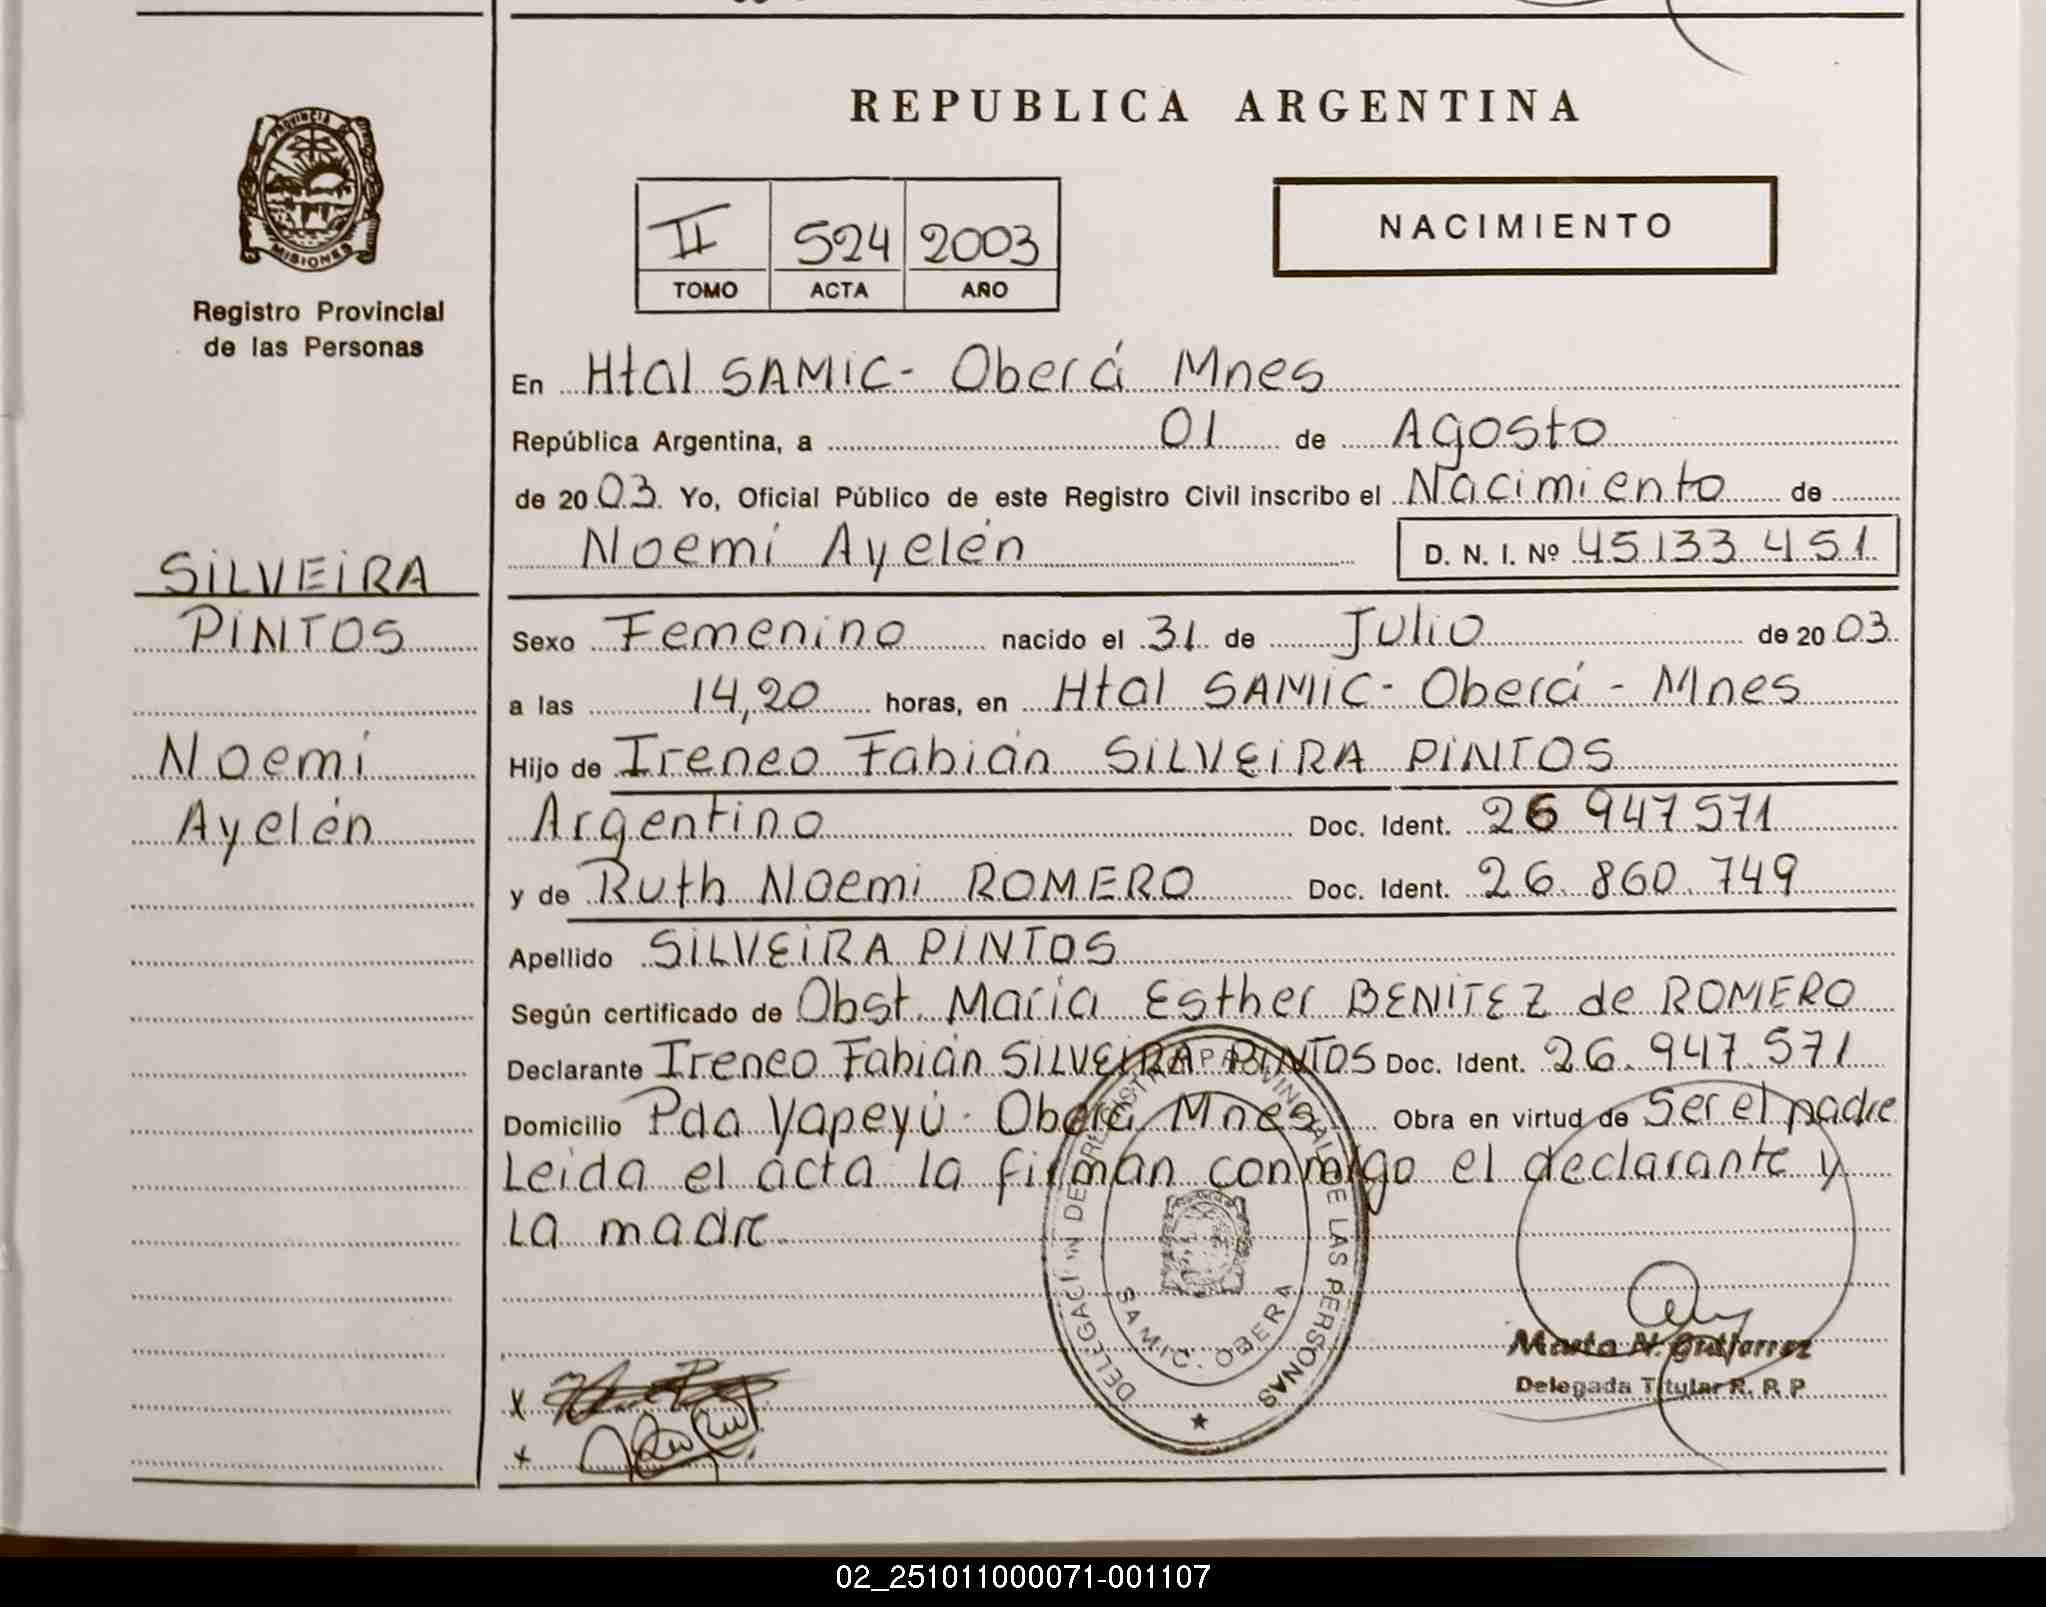 REPUBLICA ARGENTINA
PROVINCIA DE
MISIONES
Registro Provincial
de las Personas
II 524 2003
TOMO ACTA AÑO
NACIMIENTO
En Htal SAMIC- Oberá Mnes
República Argentina, a 01 de Agosto
de 2003. Yo, Oficial Público de este Registro Civil inscribo el Nacimiento de
Noemí Ayelén D. N. I. Nº 45.133.451
SILVEIRA
PINTOS
Noemí
Ayelén
Sexo Femenino nacido el 31 de Julio de 2003
a las 14,20 horas, en Htal SAMIC- Oberá - Mnes
Hijo de Ireneo Fabián SILVEIRA PINTOS
Argentino Doc. Ident. 26 947 571
y de Ruth Noemi ROMERO Doc. Ident. 26.860.749
Apellido SILVEIRA PINTOS
Según certificado de Obst. María Esther BENITEZ de ROMERO
Declarante Ireneo Fabián SILVEIRA PINTOS Doc. Ident. 26.947.571
Domicilio Pda Yapeyú. Oberá Mnes Obra en virtud de Ser el padre
Leida el acta la firman conmigo el declarante y
la madre.
DELEGACION DE REGISTRO PROVINCIAL DE LAS PERSONAS
SAMIC. OBERA
Marta N. Gutierrez
Delegada Titular R. P. P
x
x
02_251011000071-001107